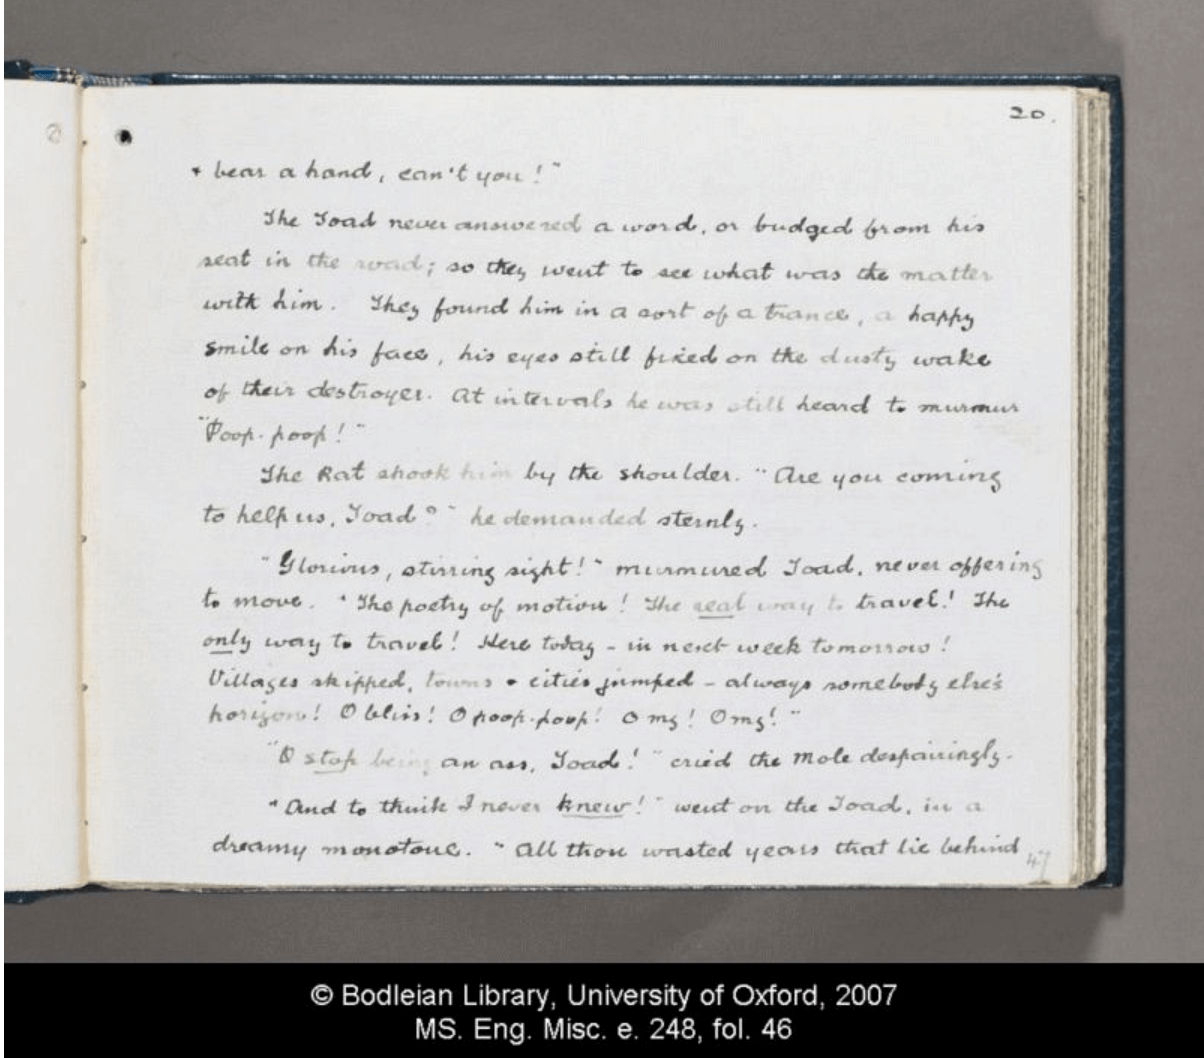 20.
+ bear a hand, can't you!"
The Toad never answered a word, or budged from his
seat in the road; so they went to see what was the matter
with him. They found him in a sort of a trance, a happy
smile on his face, his eyes still fixed on the dusty wake
of their destroyer. At intervals he was still heard to murmur
"Poop-poop!"
The Rat shook him by the shoulder. "Are you coming
to help us, Toad?" he demanded sternly.
"Glorious, stirring sight!" murmured Toad, never offering
to move. "The poetry of motion! The real way to travel! The
only way to travel! Here today - in next week tomorrow!
Villages skipped, towns + cities jumped - always somebody else's
horizon! O bliss! O poop-poop! O my! O my!"
"O stop being an ass, Toad!" cried the Mole despairingly.
"And to think I never knew!" went on the Toad, in a
dreamy monotone. "All those wasted years that lie behind
47
© Bodleian Library, University of Oxford, 2007
MS. Eng. Misc. e. 248, fol. 46